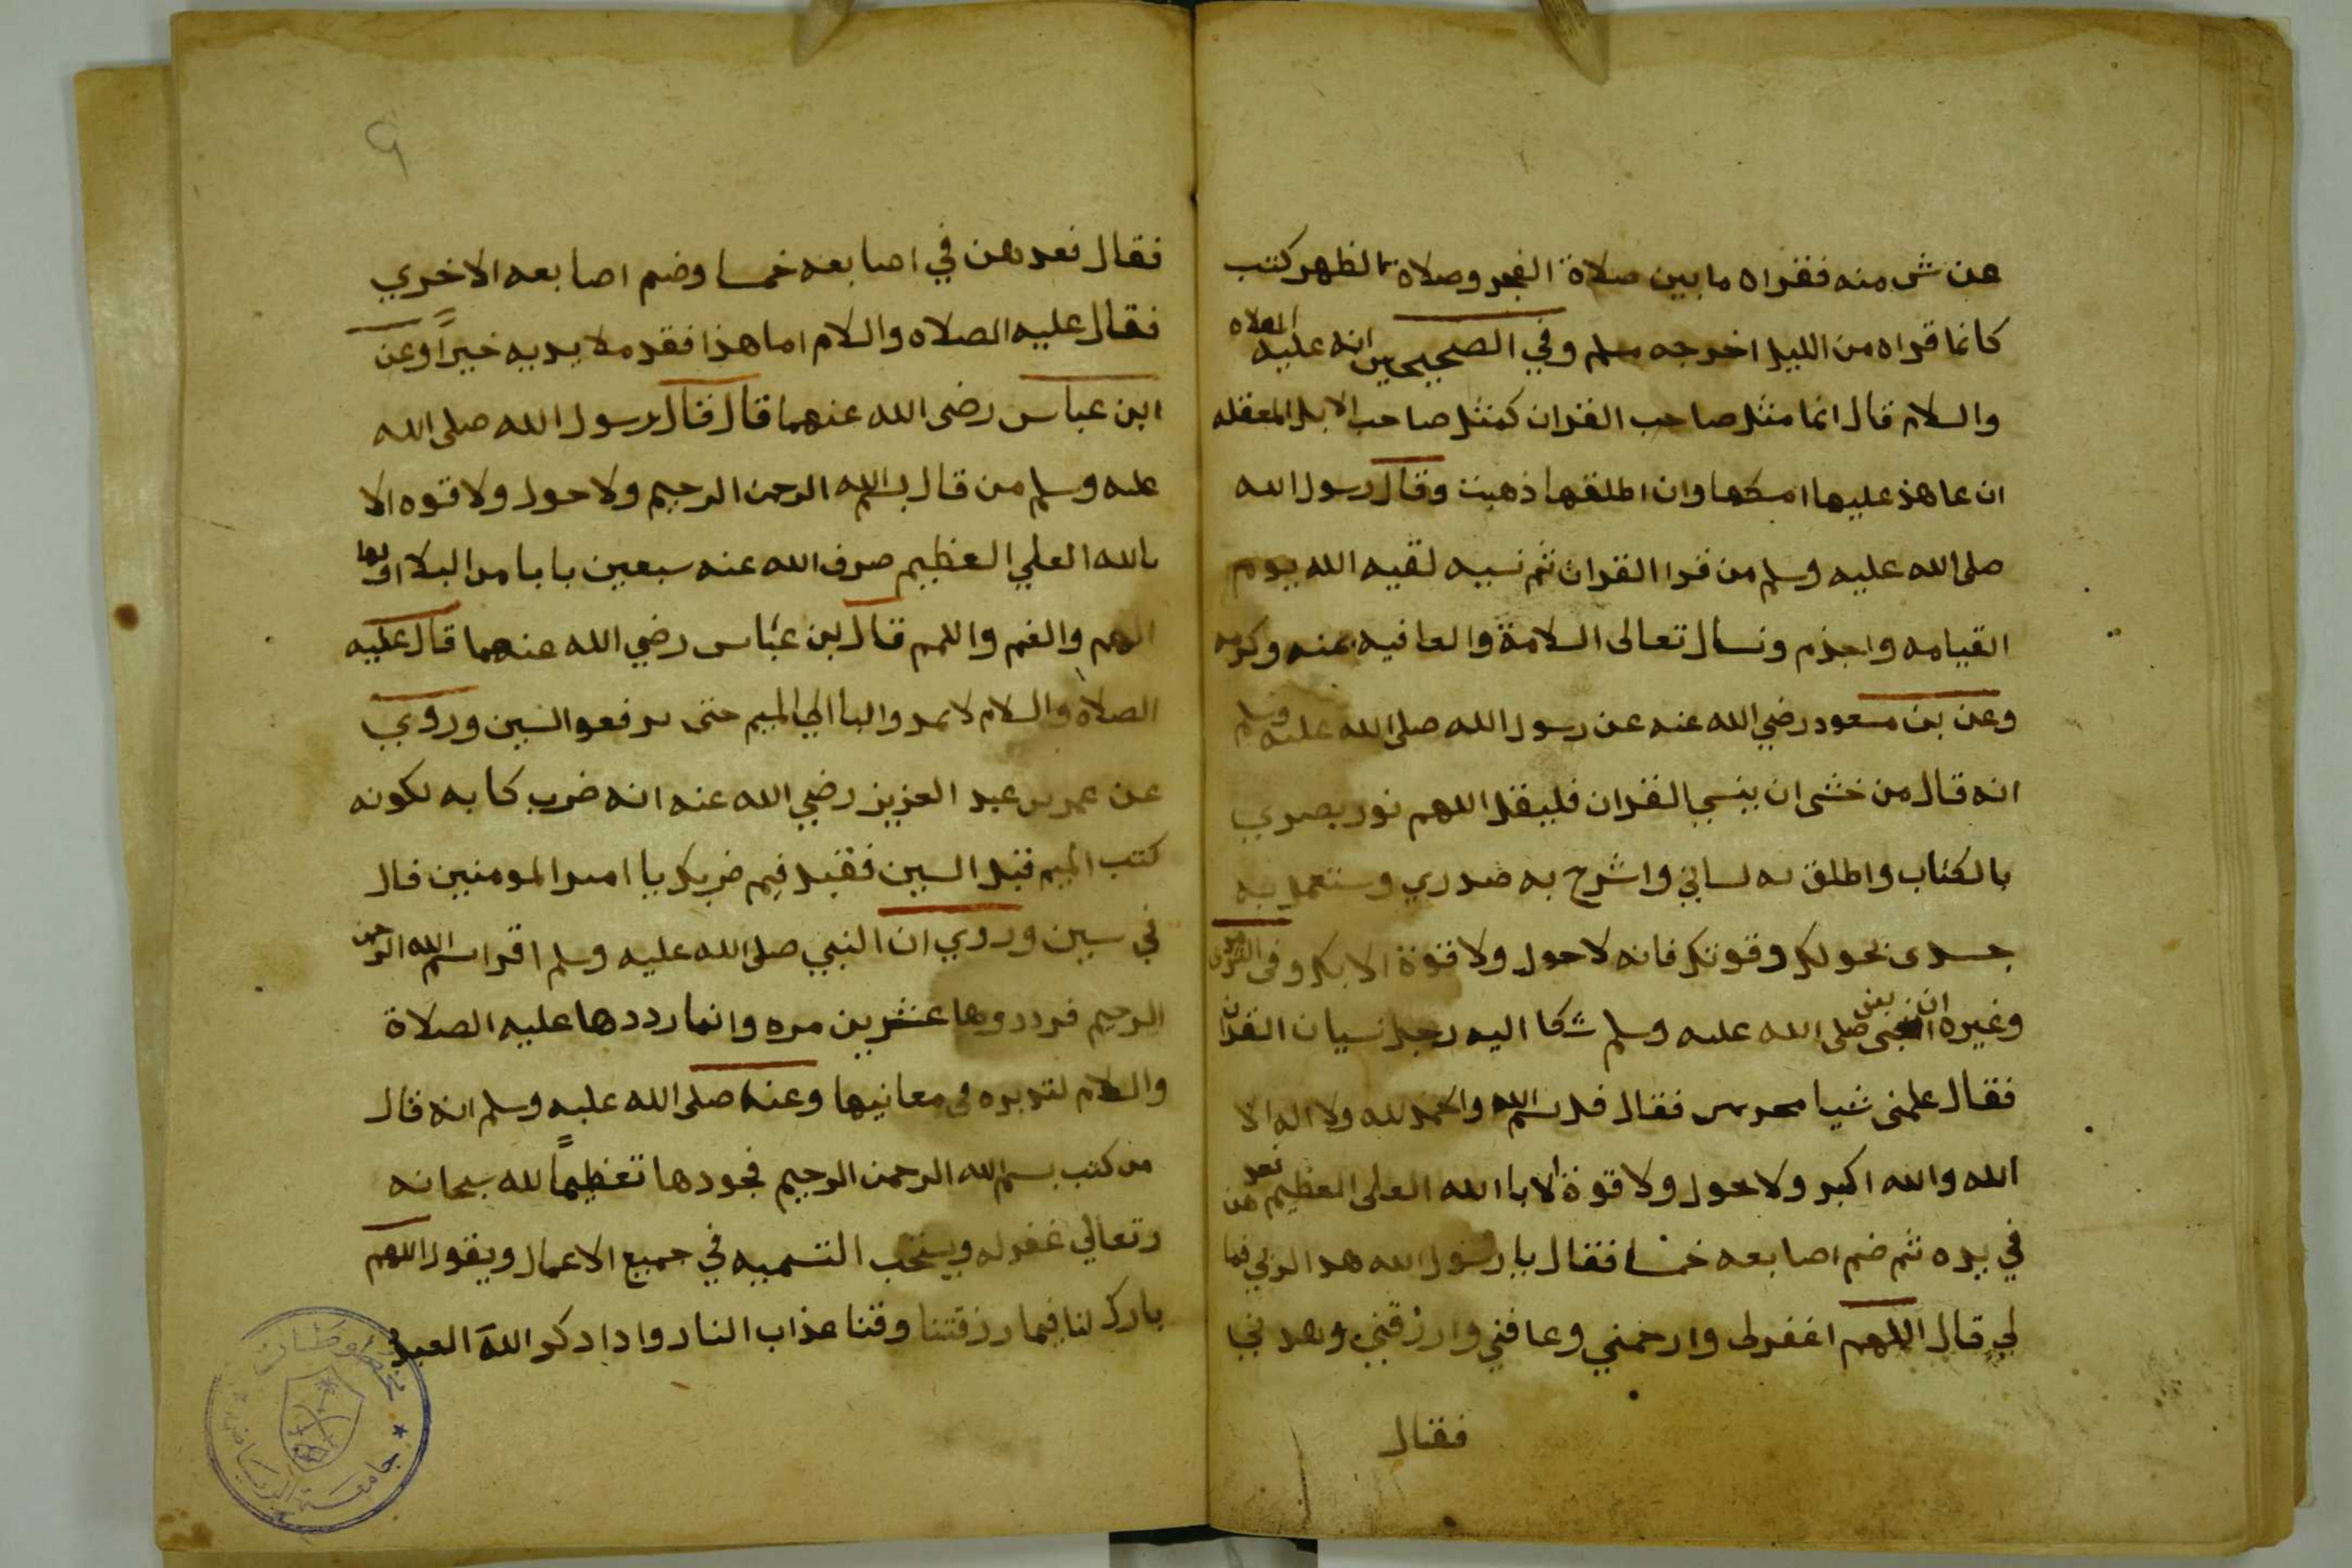 عن ش منه فقراه ما بين صلاة الفجر وصلاة الظهر كتب
كانما قراه من الليل اخرجه مسلم وفي الصحيحين انه عليه الصلاه
والسلام قال انما مثل صاحب القران كمثل صاحب الابل المعقله
ان عاهذ عليها امسكها وان اطلقها ذهبت وقال رسول الله
صلى الله عليه وسلم من قرا القران ثم نسيه لقيه الله يوم
القيامه واجذم ونسال تعالى السلامة والعافيه بمنه وكرمه
وعن بن مسعود رضي الله عنه عن رسول الله صلى الله عليه وسلم
انه قال من خشى ان ينسي القران فليقل اللهم نور بصري
بالكتاب واطلق به لساني واشرح به صدري وستعمل به
جسدى بحولك وقوتك فانه لاحول ولا قوة الا بك وفى
وغيره ان النبى صلى الله عليه وسلم شكا اليه رجل نسيان القران
فقال علمنى شيا فقال قل بسم الله والحمد لله ولا اله الا
الله والله اكبر ولا حول ولا قوة الا باالله العلى العظيم فعدهن
في يده ثم ضم اصابعه خمسا فقال يا رسول الله هدا لربي فما
لي قال اللهم اغفرلى وارحمني وعافني وارزقني وهدني
فقال
٩
فقال فعدهن في اصابعه خمسا وضم اصابعه الاخري
فقال عليه الصلاه والسلام اما هذا فقد ملا يديه خيرًا وعن
ابن عباس رضى الله عنهما قال قال رسول الله صلى الله
عليه وسلم من قال بسم الله الرحمن الرحيم ولا حول ولا قوه الا
بالله العلي العظيم صرف الله عنه سبعين بابا من البلا اولها
الهم والغم واللمم قال بن عباس رضي الله عنهما قال عليه
الصلاة والسلام لا تمدوا البا الي الميم حتى ترفعوا السين وروي
عن عمر بن عبد العزيز رضي الله عنه انه ضرب كاتبه لكونه
كتب الميم قبل السين فقيل فيم ضربك يا امير المومنين قال
في سين وروي ان النبي صلى الله عليه وسلم اقرا بسم الله الرحمن
الرحيم فرددوها عشرين مره وانما رددها عليه الصلاة
والسلام لتدبره فى معانيها وعنه صلى الله عليه وسلم انه قال
من كتب بسم الله الرحمن الرحيم فجودها تعظيمًا لله سبحانه
وتعالي غفر له ويستحب التسميه في جميع الاعمال ويقول اللهم
بارك لنا فيما رزقتنا وقنا عذاب النار وادا دكر الله العبد
جامعة الرياض
مخطوطات